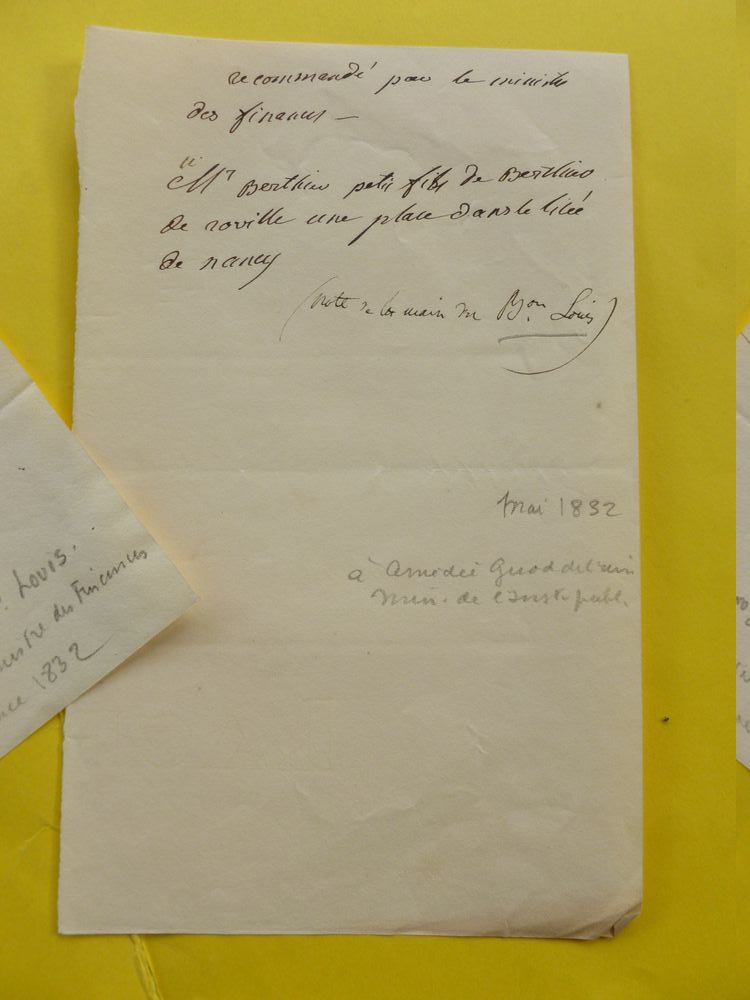 recommandé par le ministre
des finances —
Mr Berthier petit fils de Berthier
de roville une place dans le licée
de nancy
(note de la main du Bon Louis)
Mai 1832
à Amédée Girod de l'ain
Min. de l'Inst. publ.
Louis.
des Finances
1832